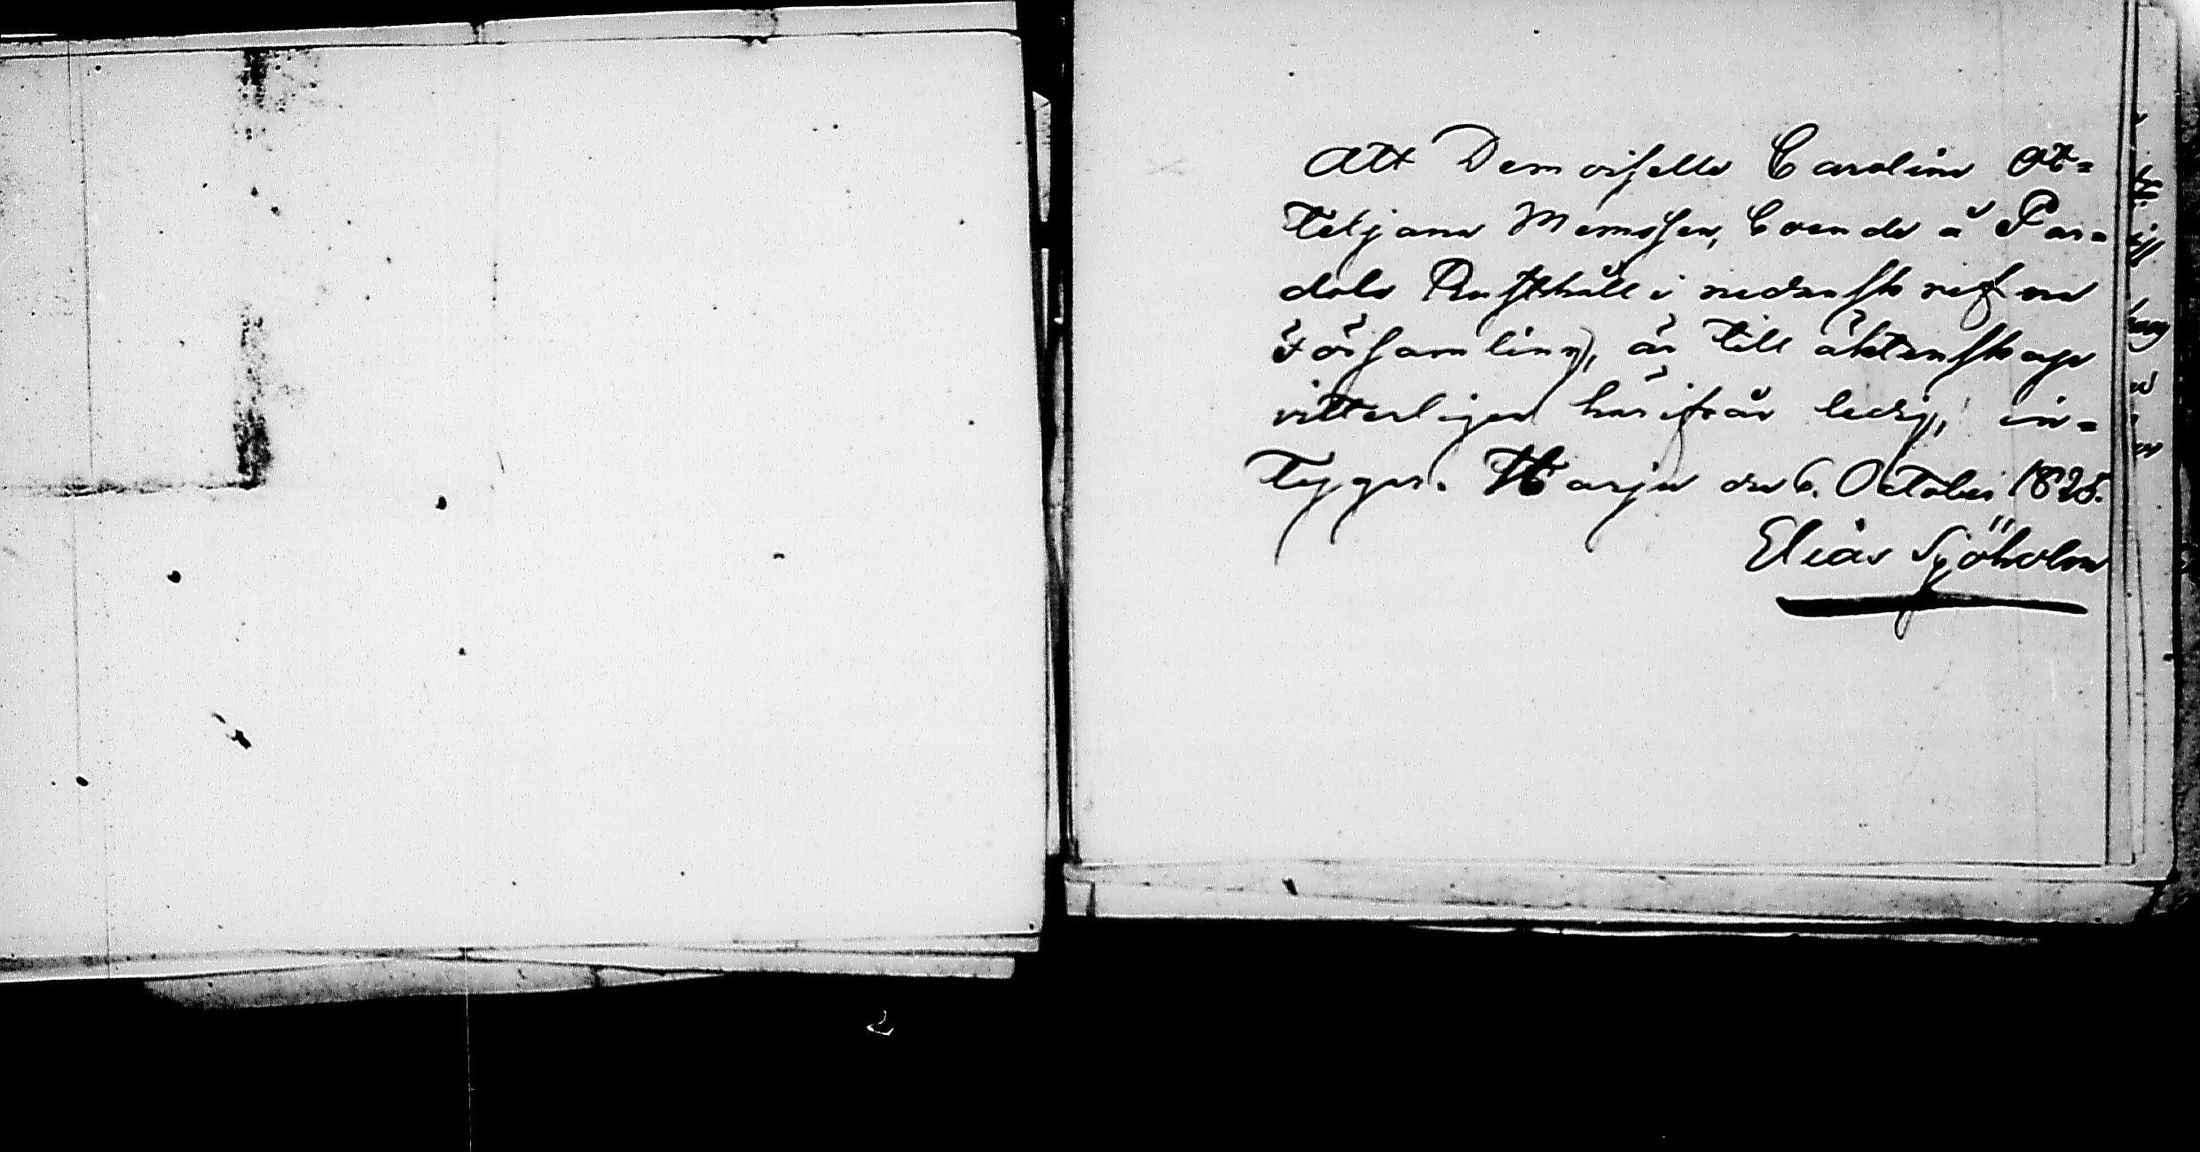 Att Demoiselle Carolina Ot=
teljana Memsen, boende å Par=
dala Rusthåll i nedanskrefne
Församling, är till äktenskap
vitterligen härifrån ledig, in=
tygar. Harju den 6. October 1825.
Elias Sjöholm